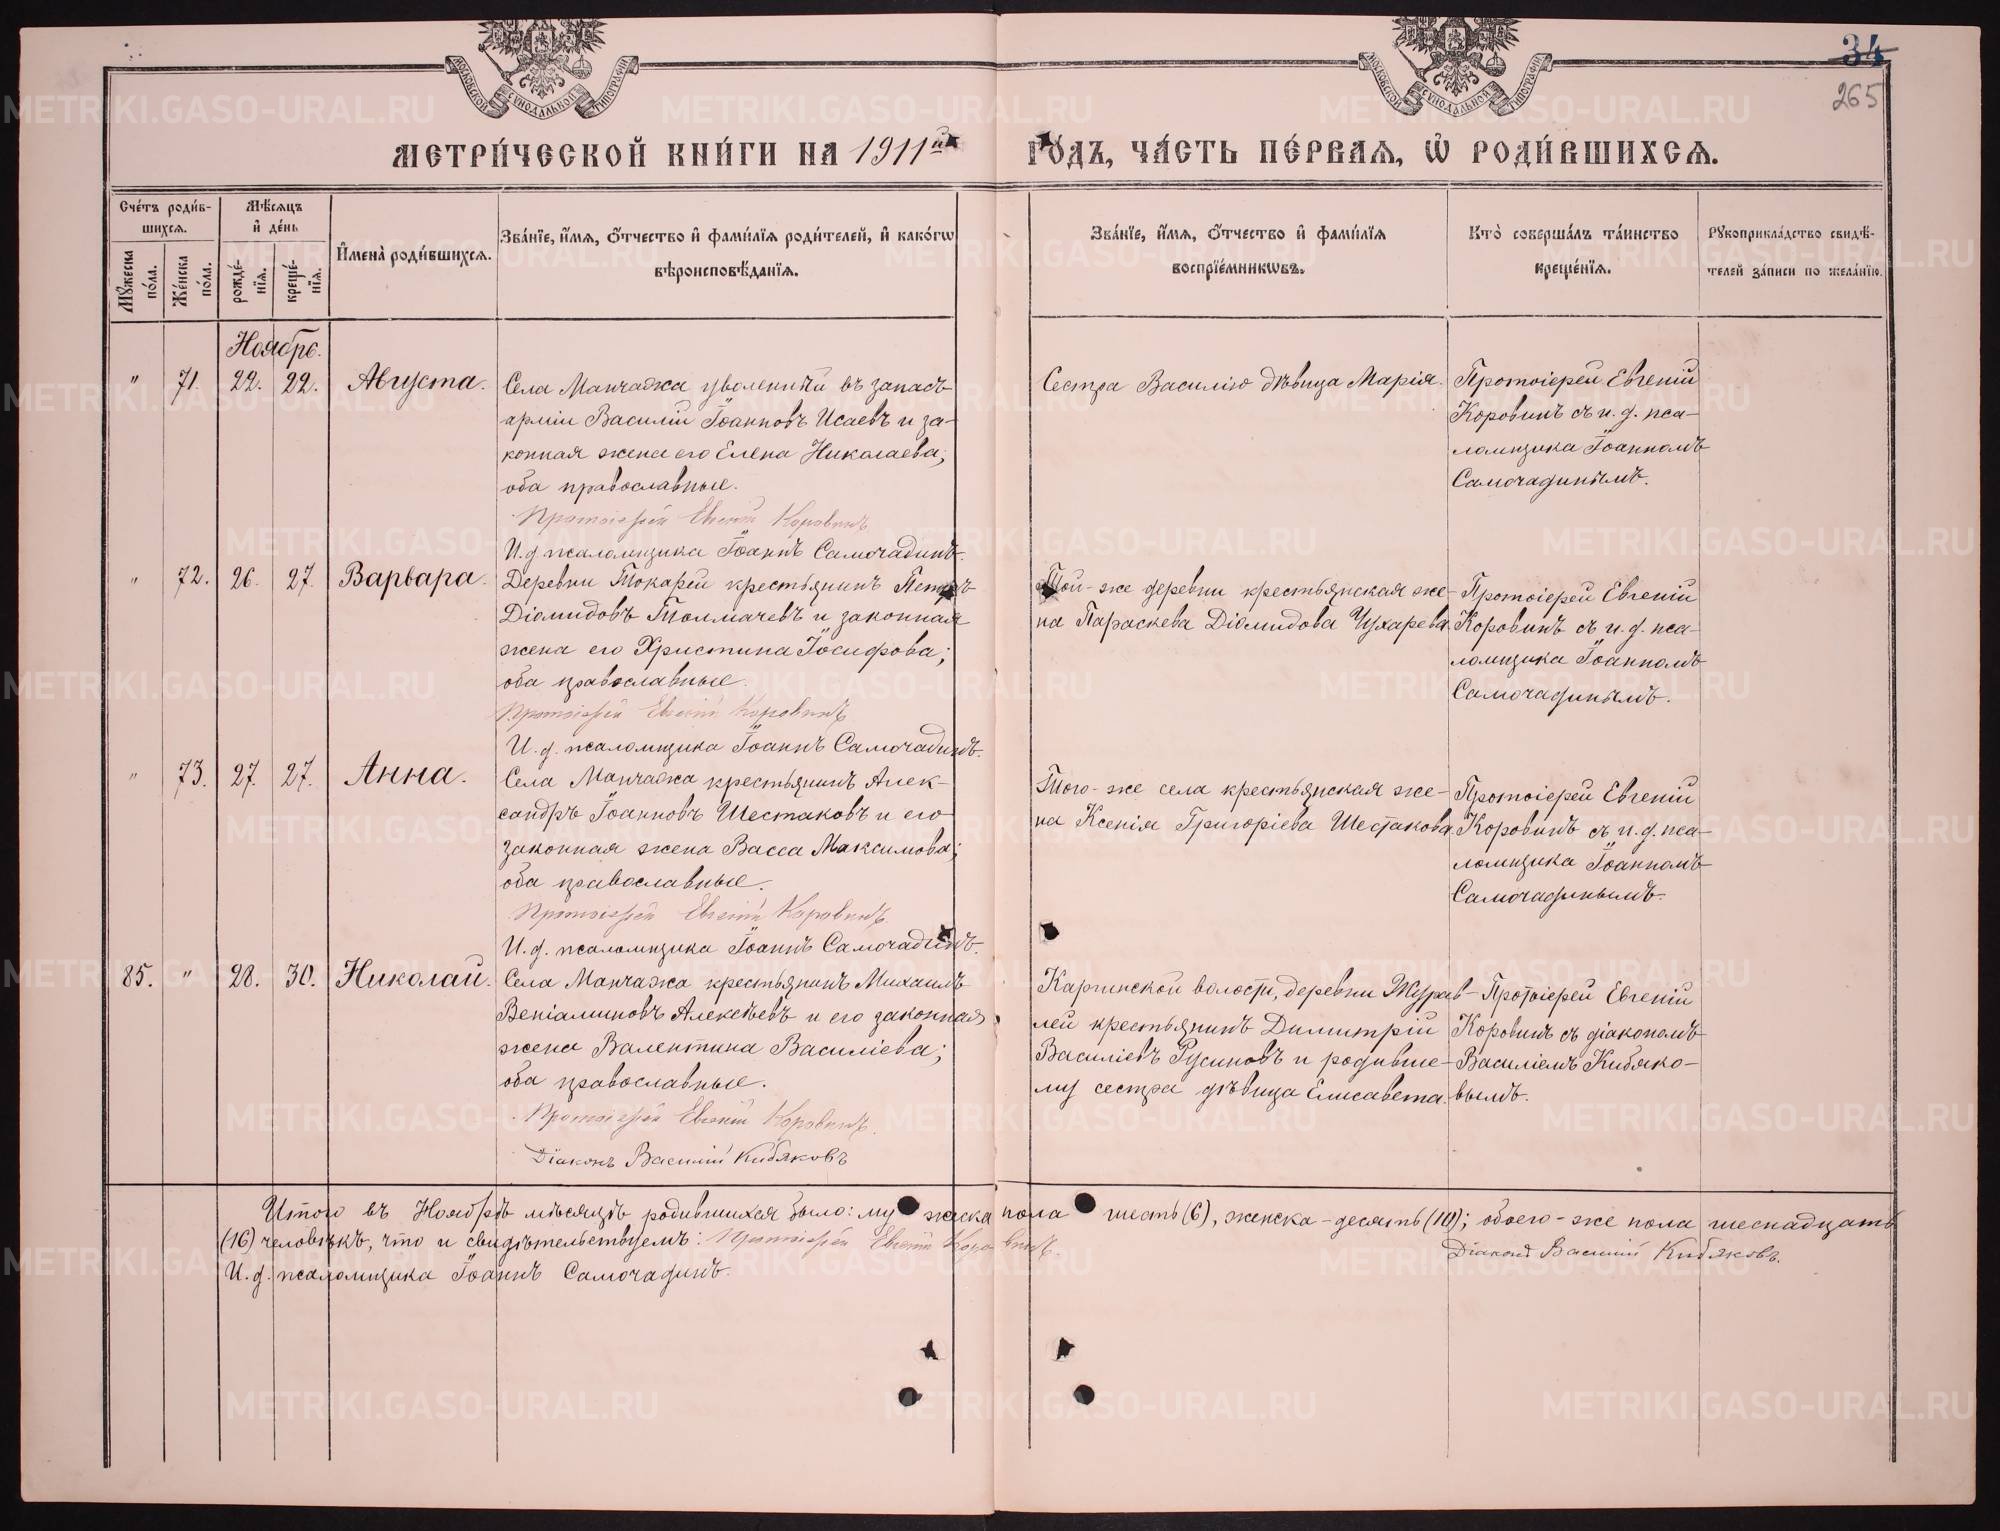 МОСКОВСКОЙ СѴНОДАЛЬНОЙ ТИПОГРАФІИ
МОСКОВСКОЙ СѴНОДАЛЬНОЙ ТИПОГРАФІИ
34
265
МЕТРИ́ЧЕСКОЙ КНИ́ГИ НА 1911й
ГО́ДЪ, ЧА́СТЬ ПЕ́РВАЯ, Ѡ҆ РОДИ́ВШИХСЯ.
Сче́тъ роди́в-
шихся.
Му́жеска по́ла.
Же́нска по́ла.
Мѣ́сяцъ
и҆ де́нь
рожде́-
нїя.
креще́-
нїя.
И҆мена̀ роди́вшихся.
Зва́нїе, и҆́мя, ѻ҆́тчество и҆ фами́лїя роди́телей, и҆ како́гѡ
вѣроисповѣ́данїя.
Зва́нїе, и҆́мя, ѻ҆́тчество и҆ фами́лїя
воспрїе́мникѡвъ.
Кто̀ соверша́лъ та́инство
креще́нїя.
Рꙋкоприкла́дство свидѣ́-
телей за́писи по жела́нїю.
Ноябрь.
" 71. 22. 22. Августа.
Села Манчажа уволенный въ запасъ
арміи Василій Іоанновъ Исаевъ и за-
конная жена его Елена Николаева;
оба православные.
Протоіерей Евгеній Коровинъ
И. д. псаломщика Іоаннъ Самочадинъ.
Сестра Василію дѣвица Марія.
Протоіерей Евгеній
Коровинъ съ и. д. пса-
ломщика Іоанномъ
Самочадинымъ.
" 72. 26. 27. Варвара.
Деревни Токарей крестьянинъ Петръ
Діомидовъ Толмачевъ и законная
жена его Христина Іосифова;
оба православные.
Протоіерей Евгеній Коровинъ
И. д. псаломщика Іоаннъ Самочадинъ.
Той-же деревни крестьянская же-
на Параскева Діомидова Чухарева.
Протоіерей Евгеній
Коровинъ съ и. д. пса-
ломщика Іоанномъ
Самочадинымъ.
" 73. 27. 27. Анна.
Села Манчажа крестьянинъ Алек-
сандръ Іоанновъ Шестаковъ и его
законная жена Васса Максимова;
оба православные.
Протоіерей Евгеній Коровинъ
И. д. псаломщика Іоаннъ Самочадинъ.
Того-же села крестьянская же-
на Ксенія Григоріева Шестакова.
Протоіерей Евгеній
Коровинъ съ и. д. пса-
ломщика Іоанномъ
Самочадинымъ.
85. " 28. 30. Николай.
Села Манчажа крестьянинъ Михаилъ
Веніаминовъ Алексѣевъ и его законная
жена Валентина Василіева;
оба православные.
Протоіерей Евгеній Коровинъ.
Діаконъ Василій Кибяковъ
Каргинской волости, деревни Журав-
лей крестьянинъ Димитрій
Василіевъ Русиновъ и родивше-
му сестра дѣвица Елисавета.
Протоіерей Евгеній
Коровинъ съ діакономъ
Василіемъ Кибяко-
вымъ.
Итого въ Ноябрѣ мѣсяцѣ родившихся было: мужеска пола шесть (6), женска - десять (10); обоего-же пола шестнадцать
(16) человѣкъ, что и свидѣтельствуемъ: Протоіерей Евгеній Коровинъ. Діаконъ Василій Кибяковъ.
И. д. псаломщика Іоаннъ Самочадинъ.